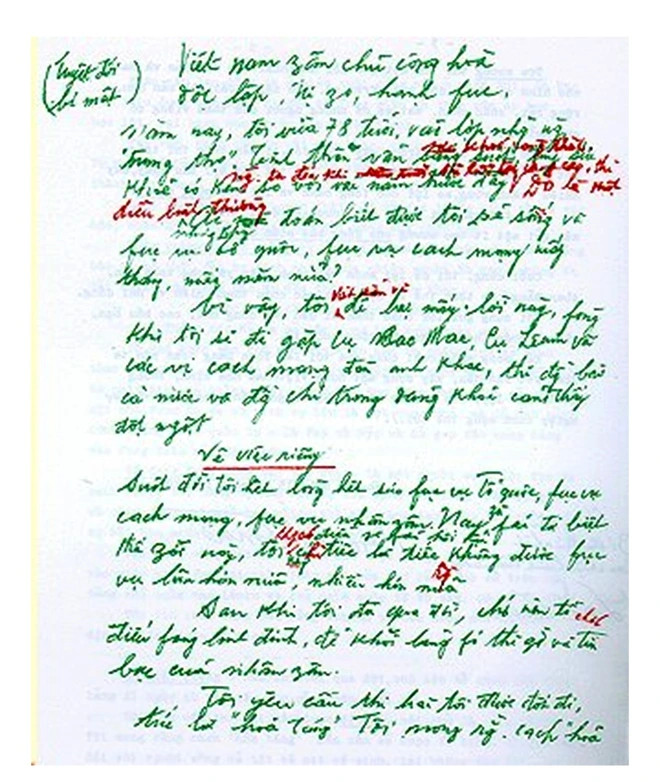 (Tuyệt đối bí mật)
Việt nam zân chủ cộng hoà
độc lập tự zo hạnh fúc
Năm nay, tôi vừa 78 tuổi, vào lớp những
"trung thọ". Tinh thần vẫn
khoẻ có kém so với vài năm trước đây Đó là một
điều bình thường
toán biết được tôi sẽ sống và
fục vụ tổ quốc, fục vụ cách mạng mấy
tháng, mấy năm nữa?
Vì vậy, tôi viết sẵn để lại mấy lời này, fòng
khi tôi sẽ đi gặp cụ Các Mác, cụ Lênin và
các vị cách mạng đàn anh khác, thì đồng bào
cả nước và đồng chí trong đảng khỏi cảm thấy
đột ngột.
Về việc riêng
Suốt đời tôi hết lòng hết sức fục vụ Tổ quốc, fục vụ
cách mạng, fục vụ nhân zân. Nay zù fải từ biệt
thế zới này, tôi không có điều gì fải hối hận, chỉ tiếc là tiếc không được fục
vụ lâu hơn nữa, nhiều hơn nữa
Sau khi tôi đã qua đời, chớ nên tổ chức
điếu fúng linh đình, để khỏi lãng fí thì giờ và tiền
bạc của nhân zân.
Tôi yêu cầu thi hài tôi được đốt đi,
tức là "hoả táng". Tôi mong rằng cách "hoả